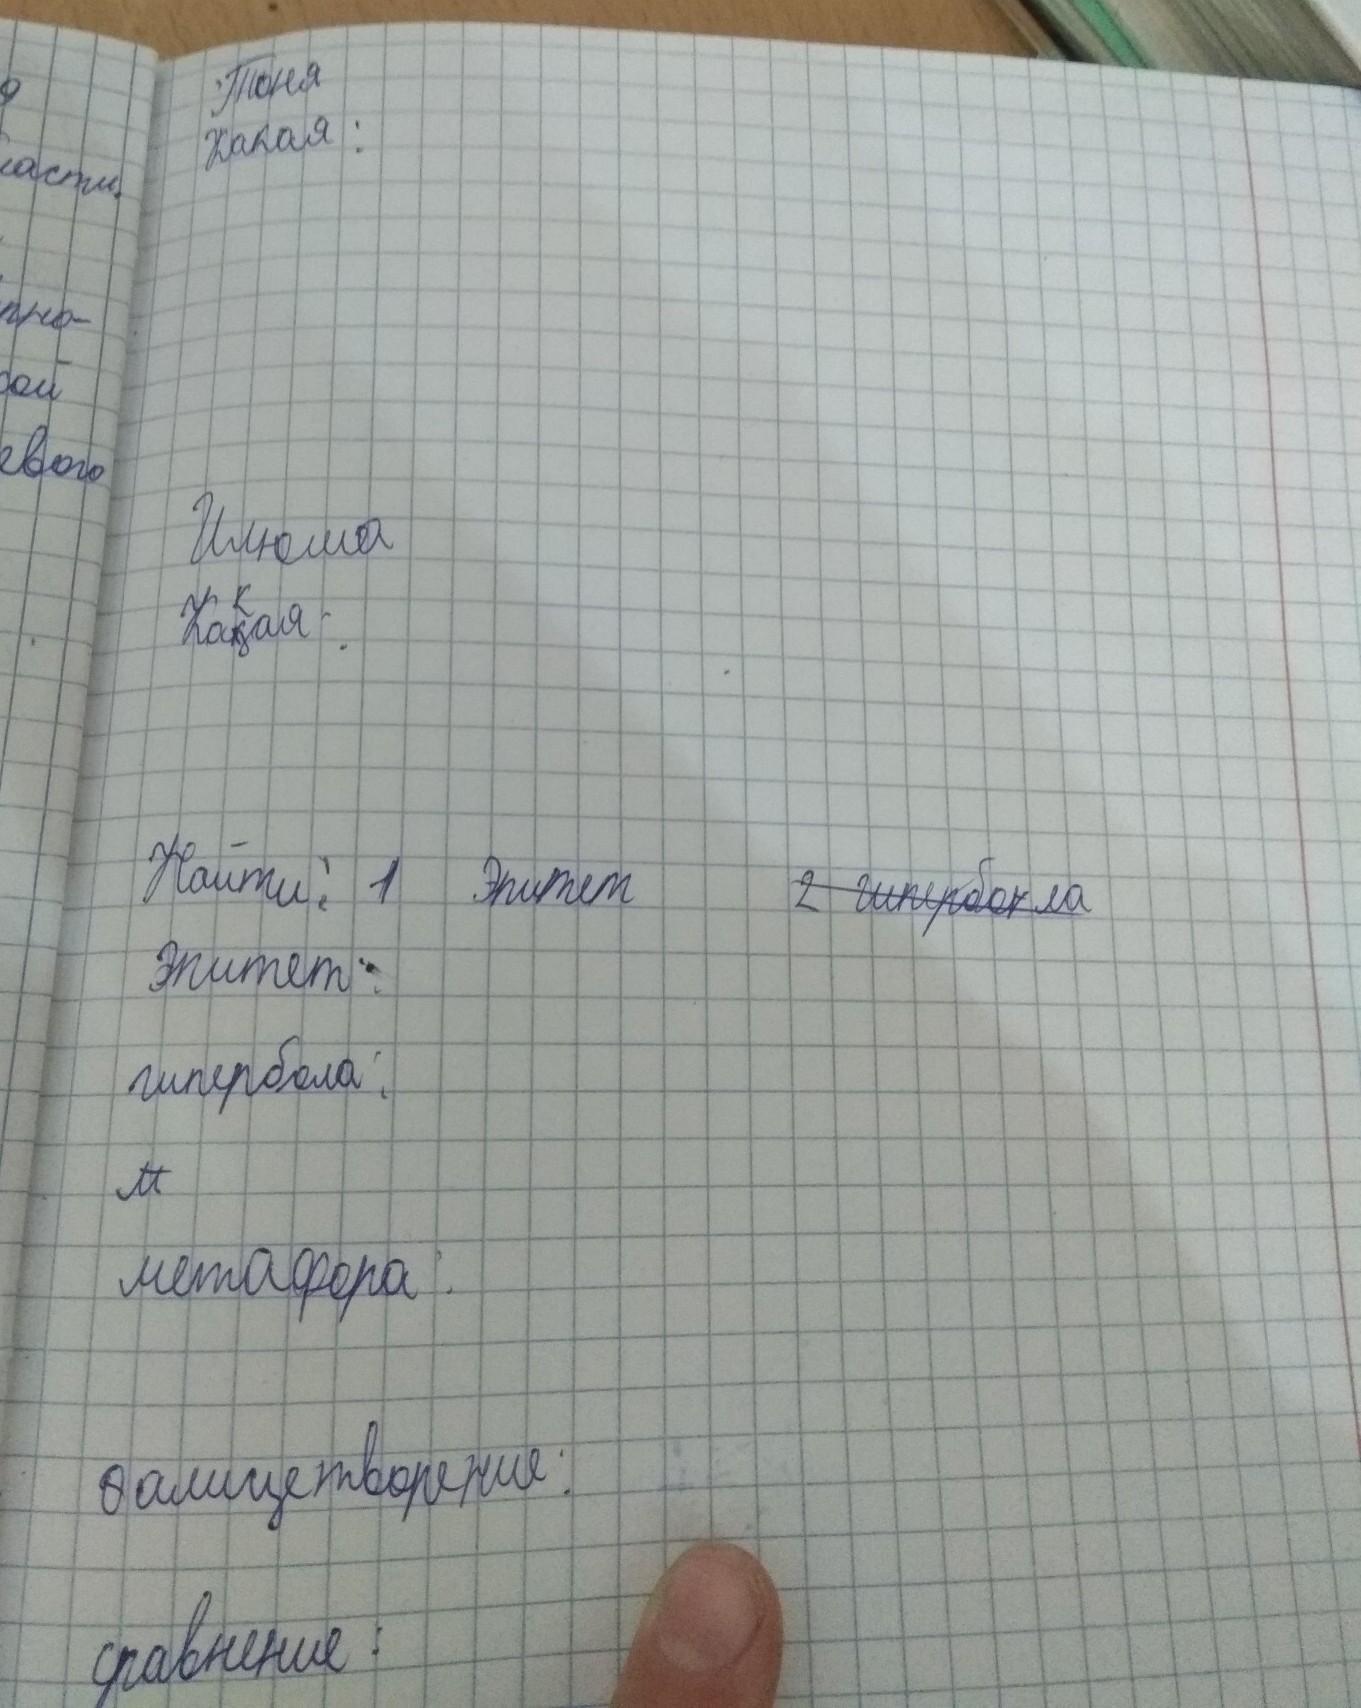 ласти.
рой
евого
Тоня
Какая:
Илюша
Какая:
Найти: 1 Эпитет 2 гипербола
Эпитет:
гипербола:
м
метафора:
оалицетворение:
сравнение: